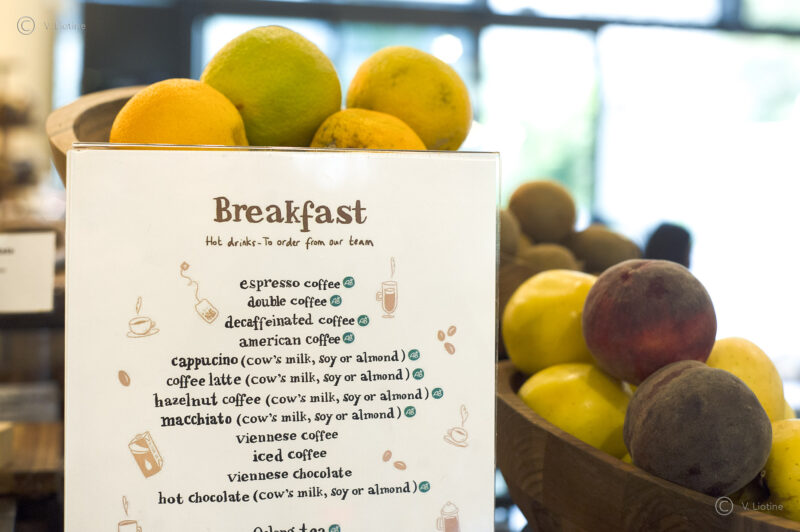 © V. Liotine
Breakfast
Hot drinks - To order from our team
espresso coffee AB
double coffee AB
decaffeinated coffee AB
american coffee AB
cappucino (cow's milk, soy or almond) AB
coffee latte (cow's milk, soy or almond) AB
hazelnut coffee (cow's milk, soy or almond) AB
macchiato (cow's milk, soy or almond) AB
viennese coffee
iced coffee
viennese chocolate
hot chocolate (cow's milk, soy or almond) AB
tea AB
© V. Liotine